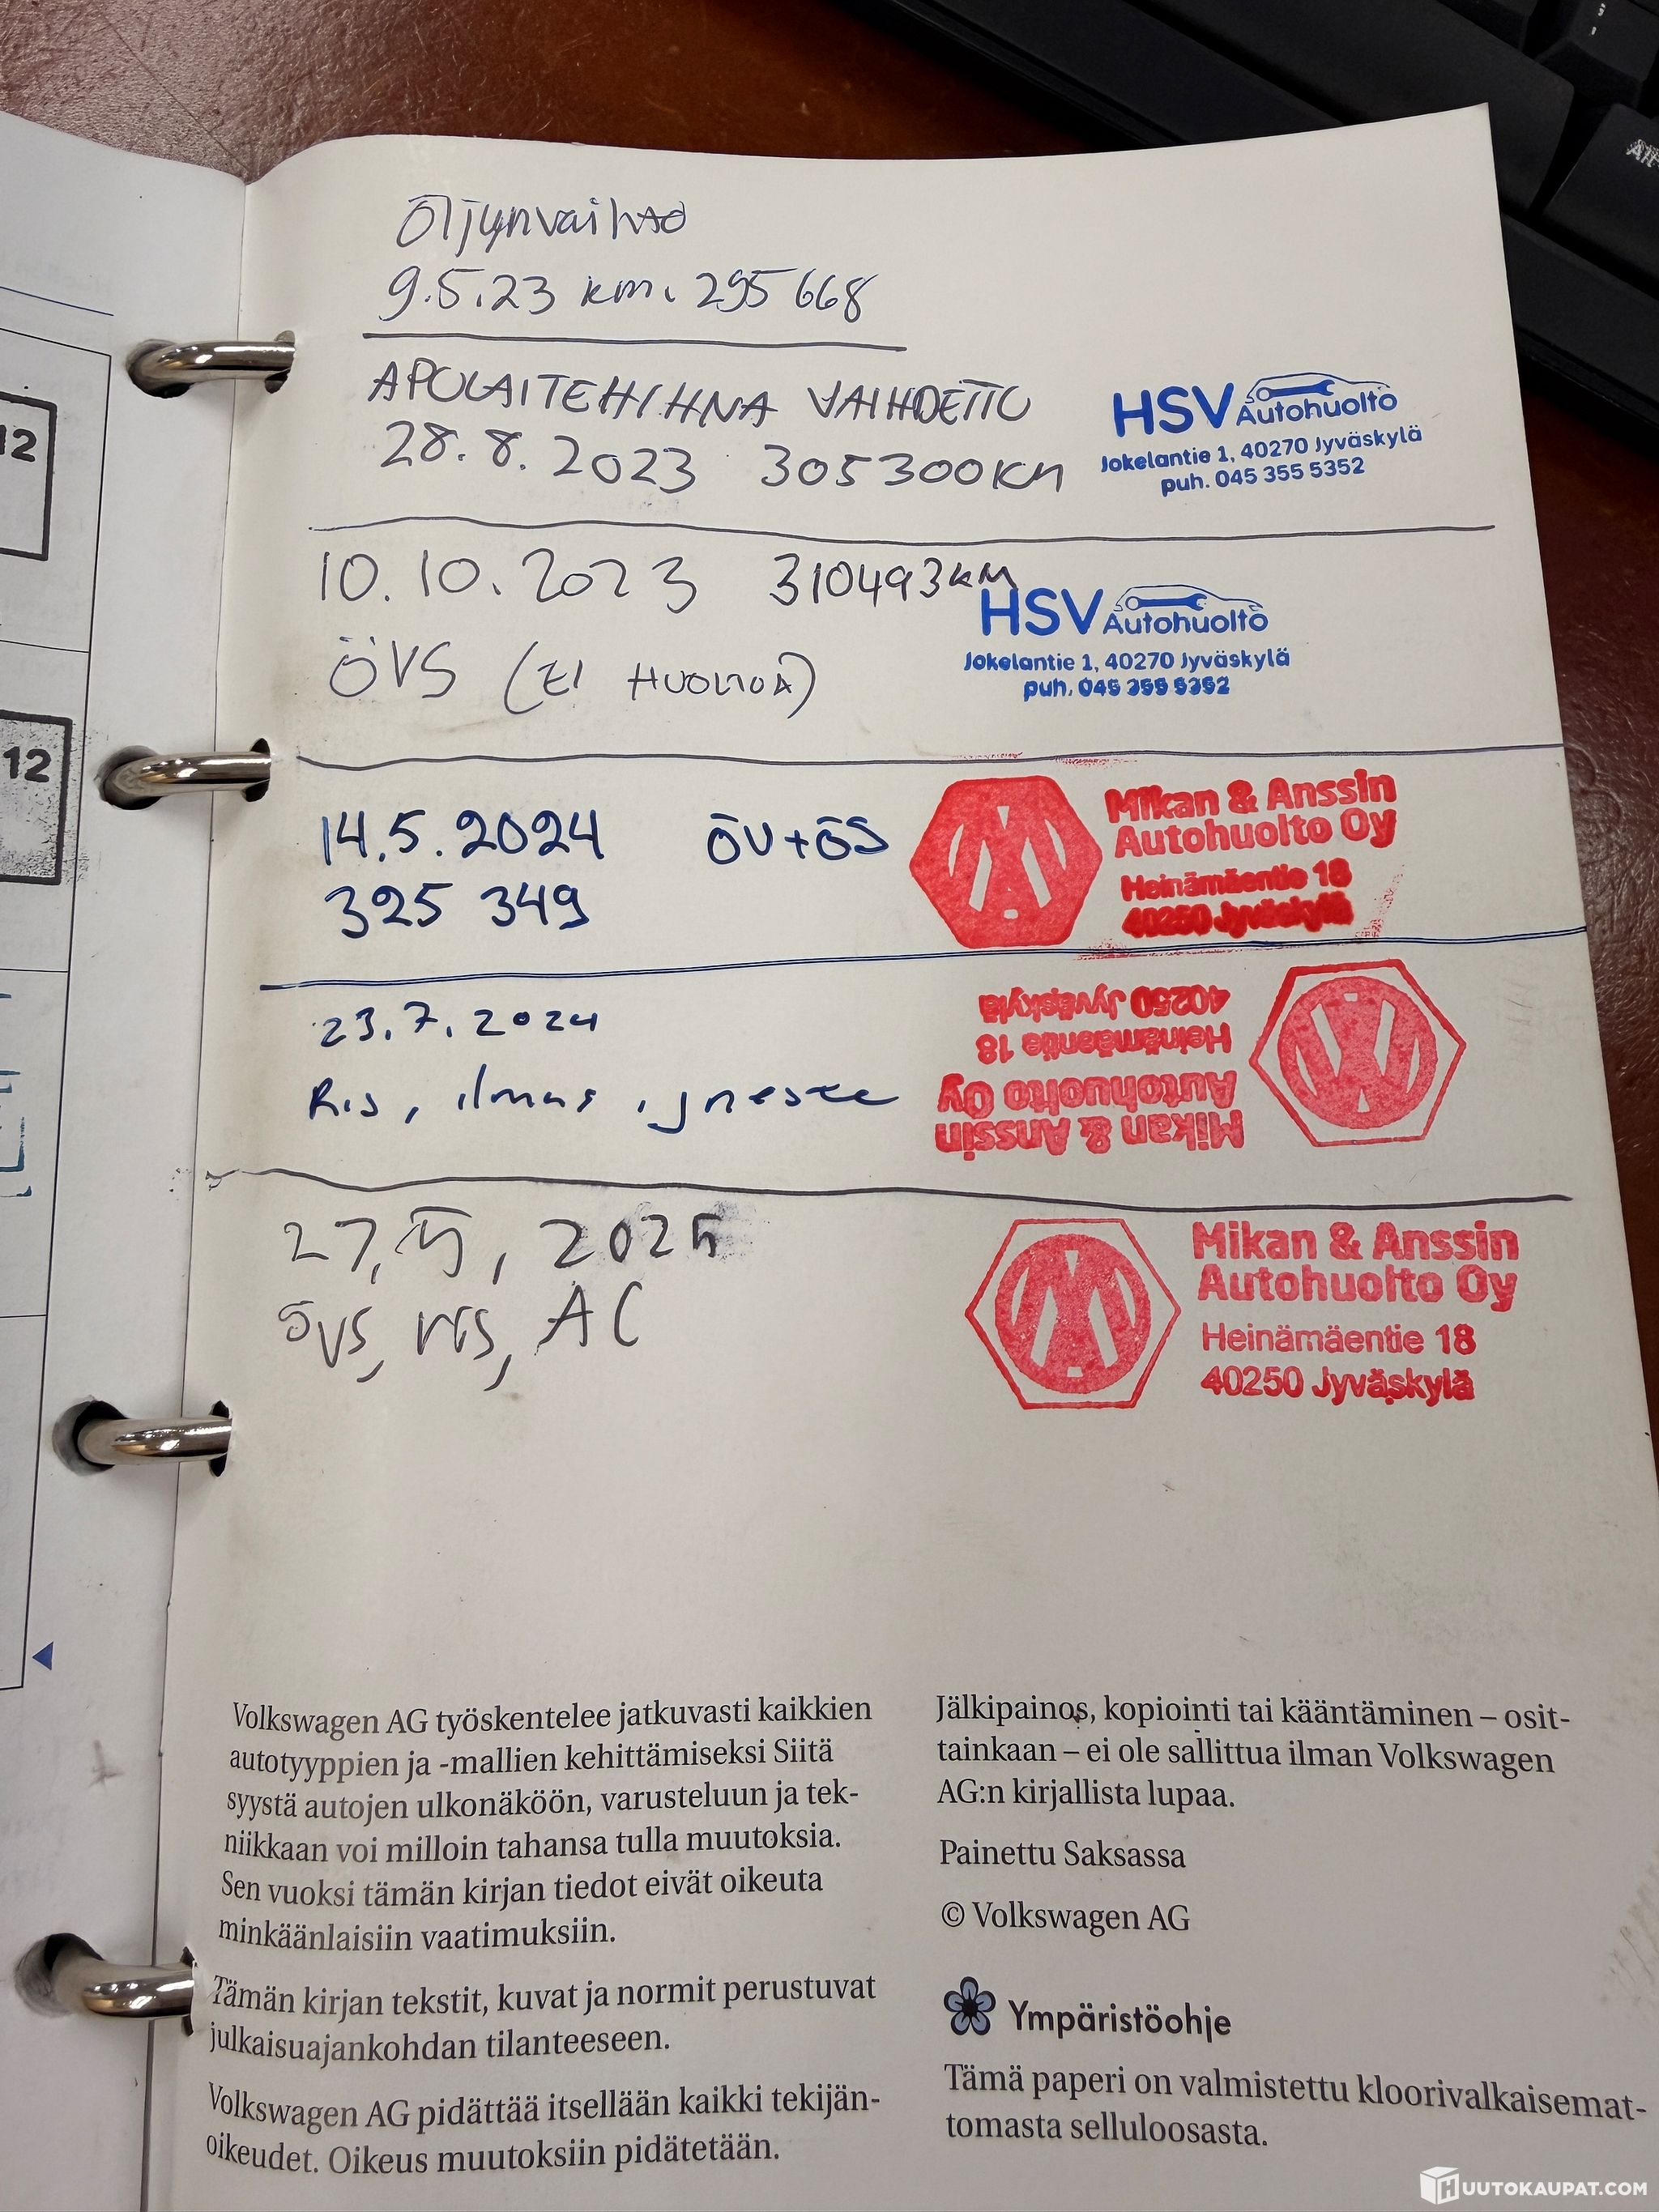 Öljynvaihto
9.5.23 km. 295 668
APULAITEHIHNA VAIHDETTU
28.8.2023 305300KM
HSV Autohuolto
Jokelantie 1, 40270 Jyväskylä
puh. 045 355 5352
10.10.2023 310493KM
ÖVS (EI HUOLTOA)
HSV Autohuolto
Jokelantie 1, 40270 Jyväskylä
puh. 045 355 5352
14.5.2024 ÖV+ÖS
325 349
Mikan & Anssin
Autohuolto Oy
Heinämäentie 18
40250 Jyväskylä
23.7.2024
Ris, ilmas, jneste
Mikan & Anssin
Autohuolto Oy
Heinämäentie 18
40250 Jyväskylä
27.5.2025
övs, ris, AC
Mikan & Anssin
Autohuolto Oy
Heinämäentie 18
40250 Jyväskylä
12
12
Alt
Volkswagen AG työskentelee jatkuvasti kaikkien
autotyyppien ja -mallien kehittämiseksi Siitä
syystä autojen ulkonäköön, varusteluun ja tek-
niikkaan voi milloin tahansa tulla muutoksia.
Sen vuoksi tämän kirjan tiedot eivät oikeuta
minkäänlaisiin vaatimuksiin.
Tämän kirjan tekstit, kuvat ja normit perustuvat
julkaisuajankohdan tilanteeseen.
Volkswagen AG pidättää itsellään kaikki tekijän-
oikeudet. Oikeus muutoksiin pidätetään.
Jälkipainos, kopiointi tai kääntäminen – osit-
tainkaan – ei ole sallittua ilman Volkswagen
AG:n kirjallista lupaa.
Painettu Saksassa
© Volkswagen AG
Ympäristöohje
Tämä paperi on valmistettu kloorivalkaisemat-
tomasta selluloosasta.
HUUTOKAUPAT.COM